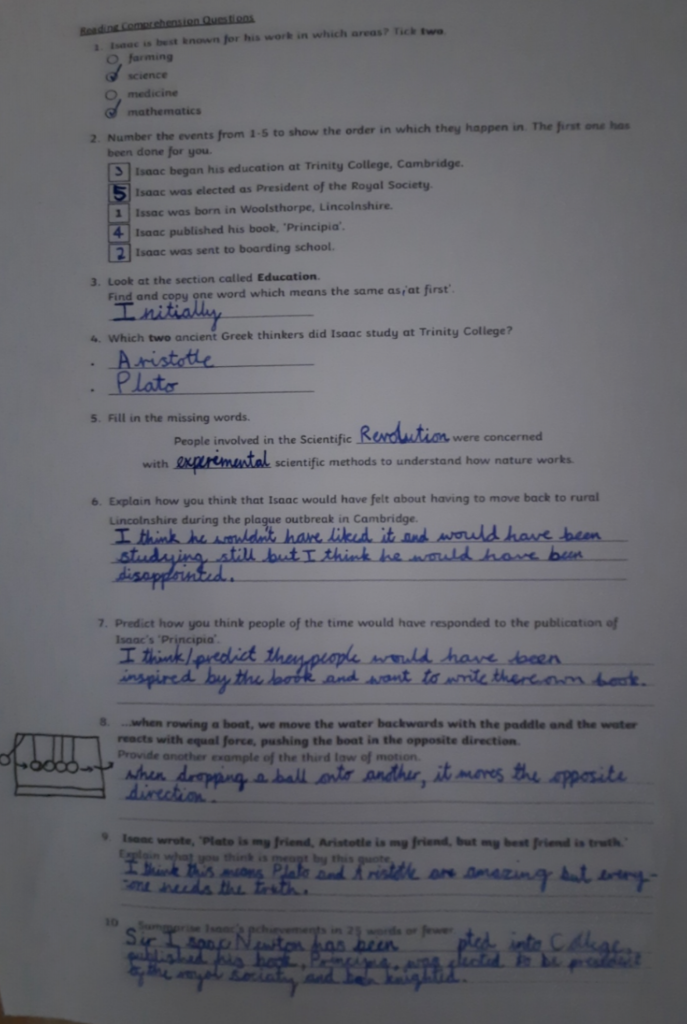 Reading Comprehension Questions
1. Isaac is best known for his work in which areas? Tick two.
farming
science
medicine
mathematics
2. Number the events from 1-5 to show the order in which they happen in. The first one has
been done for you.
3 Isaac began his education at Trinity College, Cambridge.
5 Isaac was elected as President of the Royal Society.
1 Issac was born in Woolsthorpe, Lincolnshire.
4 Isaac published his book, 'Principia'.
2 Isaac was sent to boarding school.
3. Look at the section called Education.
Find and copy one word which means the same as, 'at first'.
Initially
4. Which two ancient Greek thinkers did Isaac study at Trinity College?
Aristotle
Plato
5. Fill in the missing words.
People involved in the Scientific Revolution were concerned
with experimental scientific methods to understand how nature works.
6. Explain how you think that Isaac would have felt about having to move back to rural
Lincolnshire during the plague outbreak in Cambridge.
I think he wouldn't have liked it and would have been
studying still but I think he would have been
disappointed.
7. Predict how you think people of the time would have responded to the publication of
Isaac's 'Principia'.
I think/predict they people would have been
inspired by the book and want to write there own book.
8. ...when rowing a boat, we move the water backwards with the paddle and the water
reacts with equal force, pushing the boat in the opposite direction.
Provide another example of the third law of motion.
when dropping a ball onto another, it moves the opposite
direction.
9 Isaac wrote, 'Plato is my friend, Aristotle is my friend, but my best friend is truth.'
Explain what you think is meant by this quote.
I think this means Plato and Aristotle are amazing but every-
-one needs the truth.
10 Summarise Isaac's achievements in 25 words or fewer
Sir Isaac Newton has been pted into College,
published his book, Principia, was elected to be president
of the royal society and been knighted.